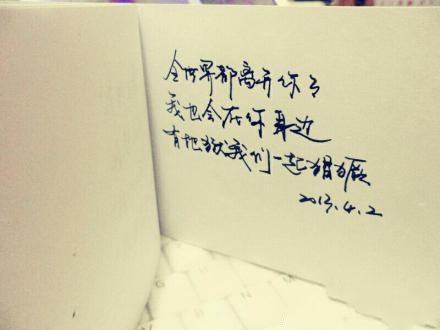 全世界都离开你了
我也会在你身边
有地狱我们一起猖獗
2013.4.2